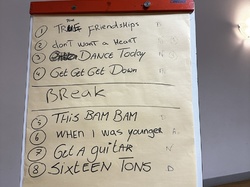 ① TRUE friendships N
② don't want a Heart
③ DANCE Today N
④ Get Get Get Down
Break
⑤ THIS BAM BAM D
⑥ when I was younger A.
⑦ Get A guitar N
⑧ SIXTEEN TONS D